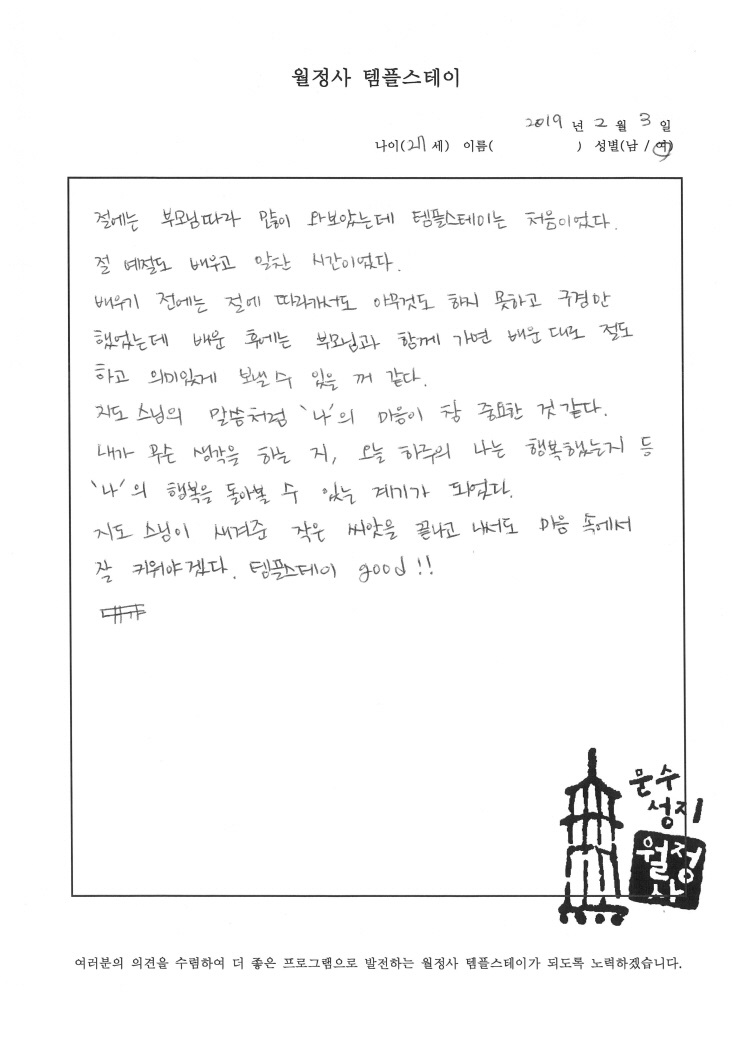 월정사 템플스테이
2019 년 2 월 3 일
나이(27세) 이름( ) 성별(남 / 여)
절에는 부모님따라 많이 와보았는데 템플스테이는 처음이었다.
절 예절도 배우고 알찬 시간이었다.
배우기 전에는 절에 따라가서도 아무것도 하지 못하고 구경만
했었는데 배운 후에는 부모님과 함께 가면 배운대로 절도
하고 의미있게 보낼 수 있을 꺼 같다.
지도 스님의 말씀처럼 '나'의 마음이 참 중요한 것 같다.
내가 무슨 생각을 하는 지, 오늘 하루의 나는 행복했는지 등
'나'의 행복을 돌아볼 수 있는 계기가 되었다.
지도 스님이 새겨준 작은 씨앗을 끝나고 나서도 마음 속에서
잘 키워야겠다. 템플스테이 good!!
문수
성지
월정
사
여러분의 의견을 수렴하여 더 좋은 프로그램으로 발전하는 월정사 템플스테이가 되도록 노력하겠습니다.